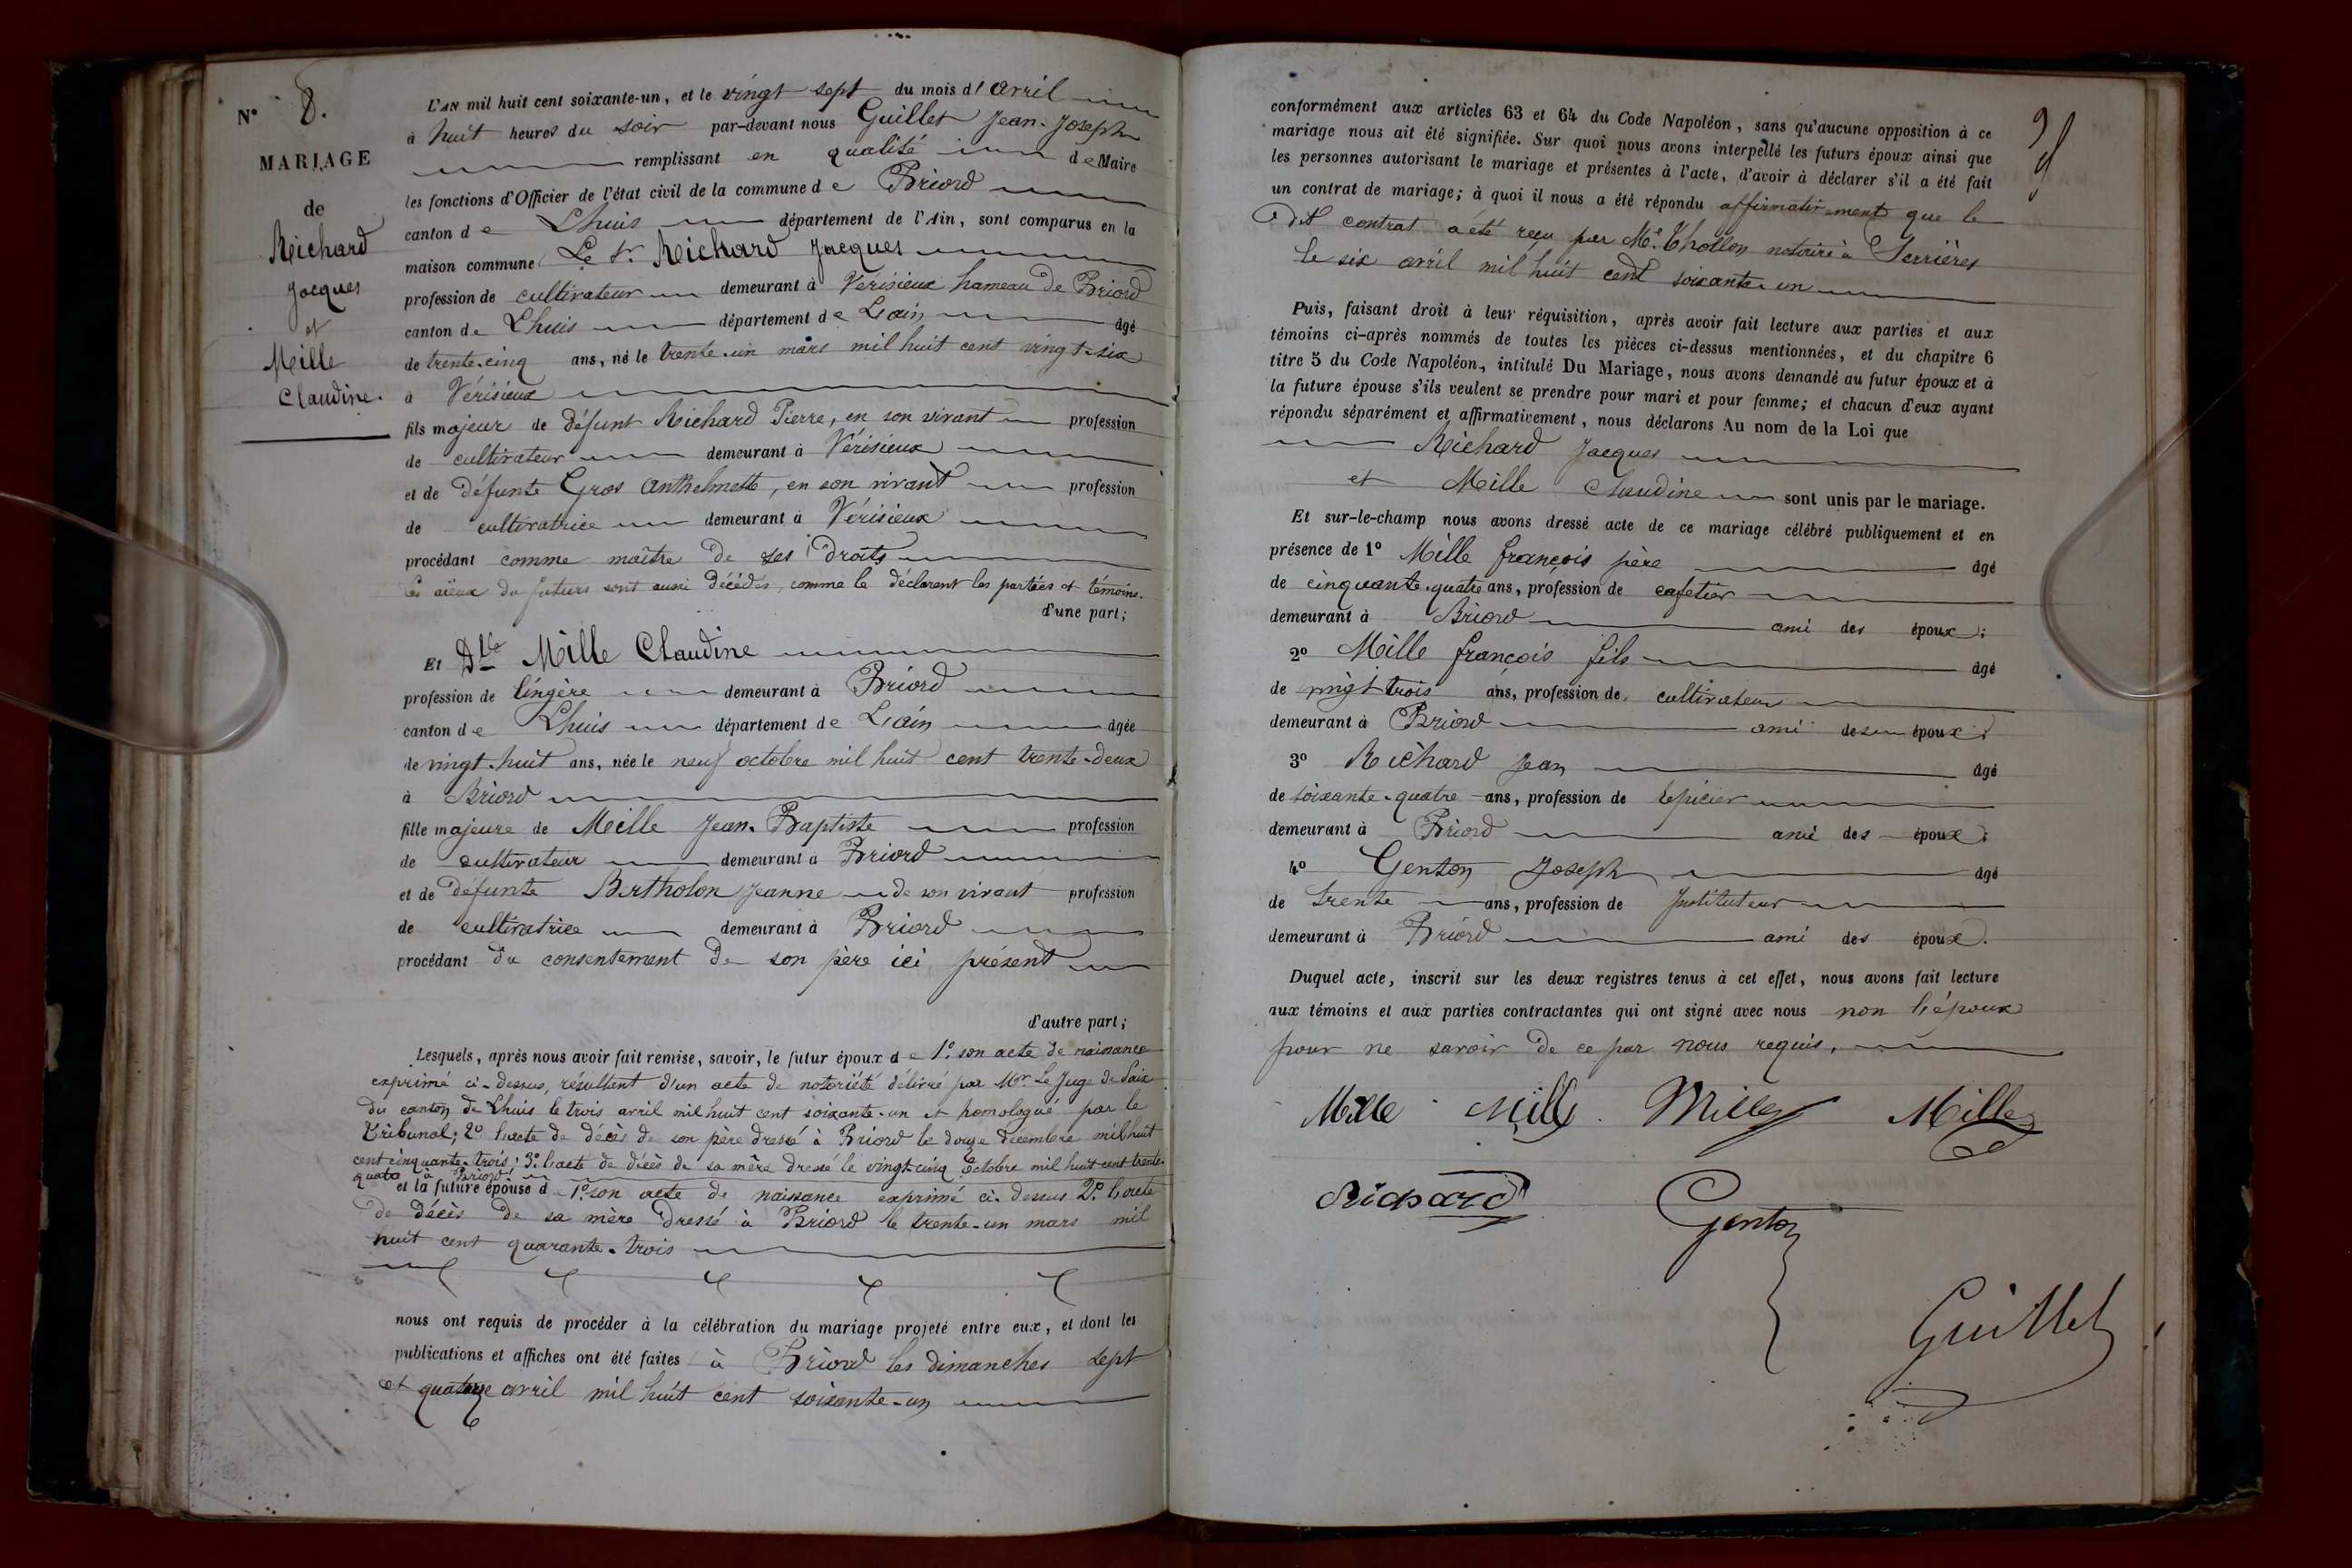 N° 8.
MARIAGE
de
Richard
Jacques
et
Mille
Claudine.
L'AN mil huit cent soixante-un, et le vingt sept du mois d'avril
à huit heures du soir par-devant nous Guillet Jean-Joseph
remplissant en qualité de Maire
les fonctions d'Officier de l'état civil de la commune de Briord
canton de Lhuis département de l'Ain, sont comparus en la
maison commune Le Sr. Richard Jacques
profession de cultivateur demeurant à Vérisieux hameau de Briord
canton de Lhuis département de L'ain âgé
de trente-cinq ans, né le trente-un mars mil huit cent vingt-six
à Vérisieux
fils majeur de défunt Richard Pierre, en son vivant profession
de cultivateur demeurant à Vérisieux
et de défunte Gros Anthelmette, en son vivant profession
de cultivatrice demeurant à Vérisieux
procédant comme maître de ses droits
Les aïeux du futurs sont aussi décédés, comme le déclarent les parties et témoins.
d'une part;
Et Dlle Mille Claudine
profession de lingère demeurant à Briord
canton de Lhuis département de L'ain âgée
de vingt-huit ans, née le neuf octobre mil huit cent trente-deux
à Briord
fille majeure de Mille Jean-Baptiste profession
de cultivateur demeurant à Briord
et de défunte Bertholon Jeanne de son vivant profession
de cultivatrice demeurant à Briord
procédant du consentement de son père ici présent
d'autre part;
Lesquels, après nous avoir fait remise, savoir, le futur époux de 1° son acte de naissance
exprimé ci-dessus, résultant d'un acte de notoriété délivré par Mr Le Juge de Paix
du canton de Lhuis le trois avril mil huit cent soixante-un et homologué par le
Tribunal; 2° L'acte de décès de son père dressé à Briord le douze décembre mil huit
cent cinquante-trois; 3° L'acte de décès de sa mère dressé le vingt-cinq octobre mil huit cent trente-
quatre à Briord.
et la future épouse d 1° son acte de naissance exprimé ci-dessus 2° L'acte
de décès de sa mère dressé à Briord le trente-un mars mil
huit cent quarante-trois
nous ont requis de procéder à la célébration du mariage projeté entre eux, et dont les
publications et affiches ont été faites à Briord les dimanches sept
et quatorze avril mil huit cent soixante-un
conformément aux articles 63 et 64 du Code Napoléon, sans qu'aucune opposition à ce
mariage nous ait été signifiée. Sur quoi nous avons interpellé les futurs époux ainsi que
les personnes autorisant le mariage et présentes à l'acte, d'avoir à déclarer s'il a été fait
un contrat de mariage; à quoi il nous a été répondu affirmativement que le
dit contrat a été reçu par Me. Thollon notaire à Serrières
le six avril mil huit cent soixante-un
Puis, faisant droit à leur réquisition, après avoir fait lecture aux parties et aux
témoins ci-après nommés de toutes les pièces ci-dessus mentionnées, et du chapitre 6
titre 5 du Code Napoléon, intitulé Du Mariage, nous avons demandé au futur époux et à
la future épouse s'ils veulent se prendre pour mari et pour femme; et chacun d'eux ayant
répondu séparément et affirmativement, nous déclarons Au nom de la Loi que
Richard Jacques
et Mille Claudine sont unis par le mariage.
Et sur-le-champ nous avons dressé acte de ce mariage célébré publiquement et en
présence de 1° Mille françois père âgé
de cinquante-quatre ans, profession de cafetier
demeurant à Briord ami des époux;
2° Mille françois fils âgé
de vingt trois ans, profession de cultivateur
demeurant à Briord ami des époux;
3° Richard Jean âgé
de soixante-quatre ans, profession de Epicier
demeurant à Briord ami des époux;
4° Genton Joseph âgé
de trente ans, profession de Instituteur
demeurant à Briord ami des époux.
Duquel acte, inscrit sur les deux registres tenus à cet effet, nous avons fait lecture
aux témoins et aux parties contractantes qui ont signé avec nous non L'époux
pour ne savoir de ce par nous requis.
Mille Mille Mille Mille
Richard Genton
Guillet